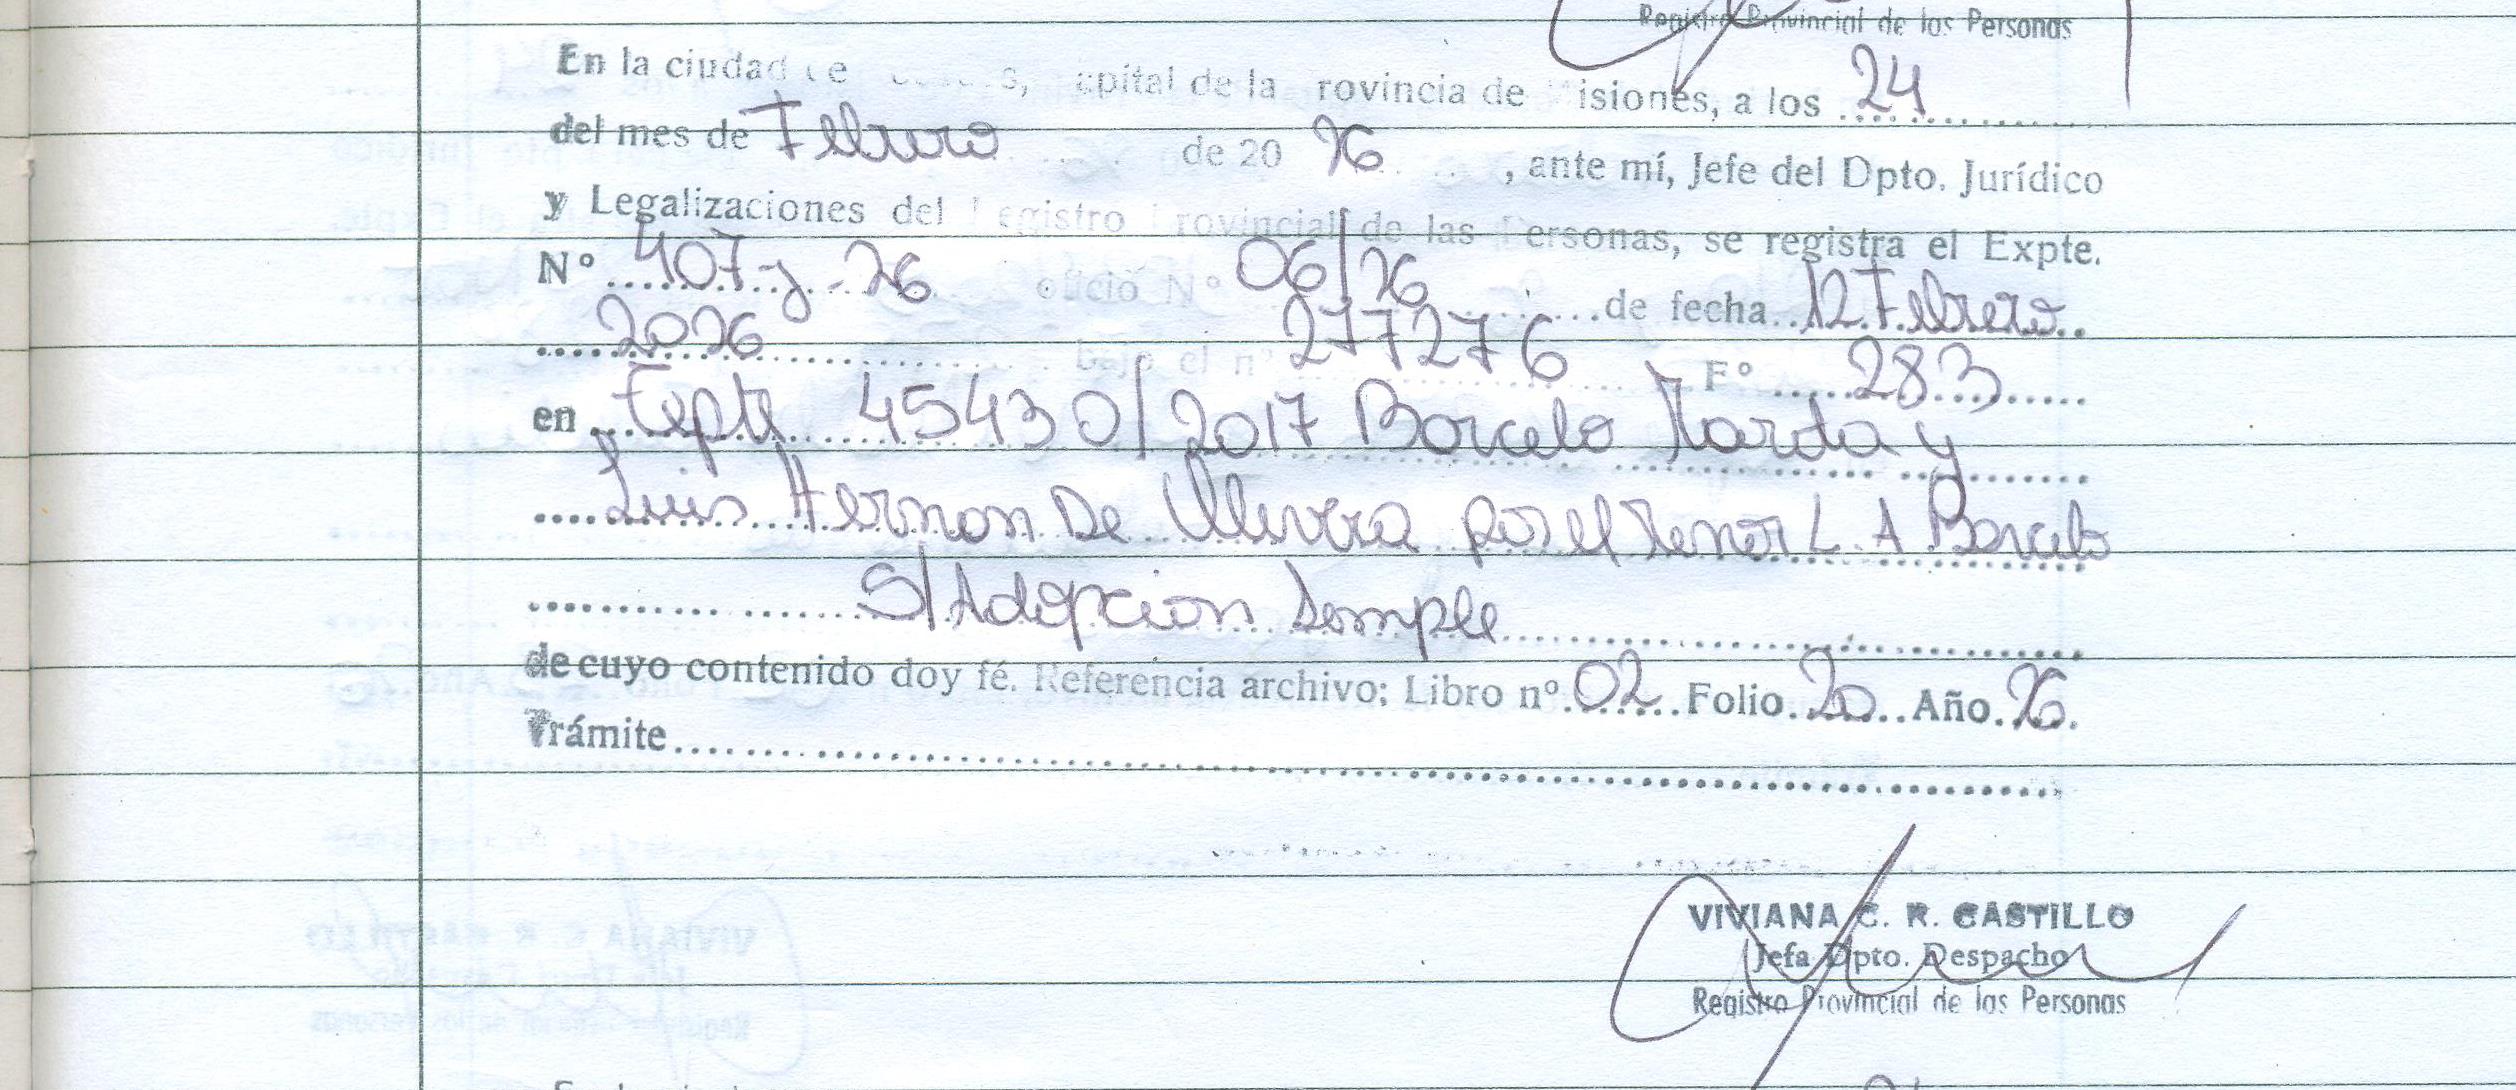 Registro Provincial de las Personas
En la ciudad de Posadas, capital de la Provincia de Misiones, a los 24
del mes de Febrero de 20 26, ante mí, Jefe del Dpto. Jurídico
y Legalizaciones del Registro Provincial de las Personas, se registra el Expte.
Nº 407-y-26 oficio Nº 06/26 de fecha 12 Febrero
2026 bajo el nº 277276 Fº 283
en Expte 45430/2017 Barcelo Marta y
Luis Hernan De Olivera por el menor L. A Barcelo
S/Adopcion Simple
de cuyo contenido doy fé. Referencia archivo; Libro nº 02 Folio 20 Año 26.
Trámite
VIVIANA C. R. CASTILLO
Jefa Dpto. Despacho
Registro Provincial de las Personas